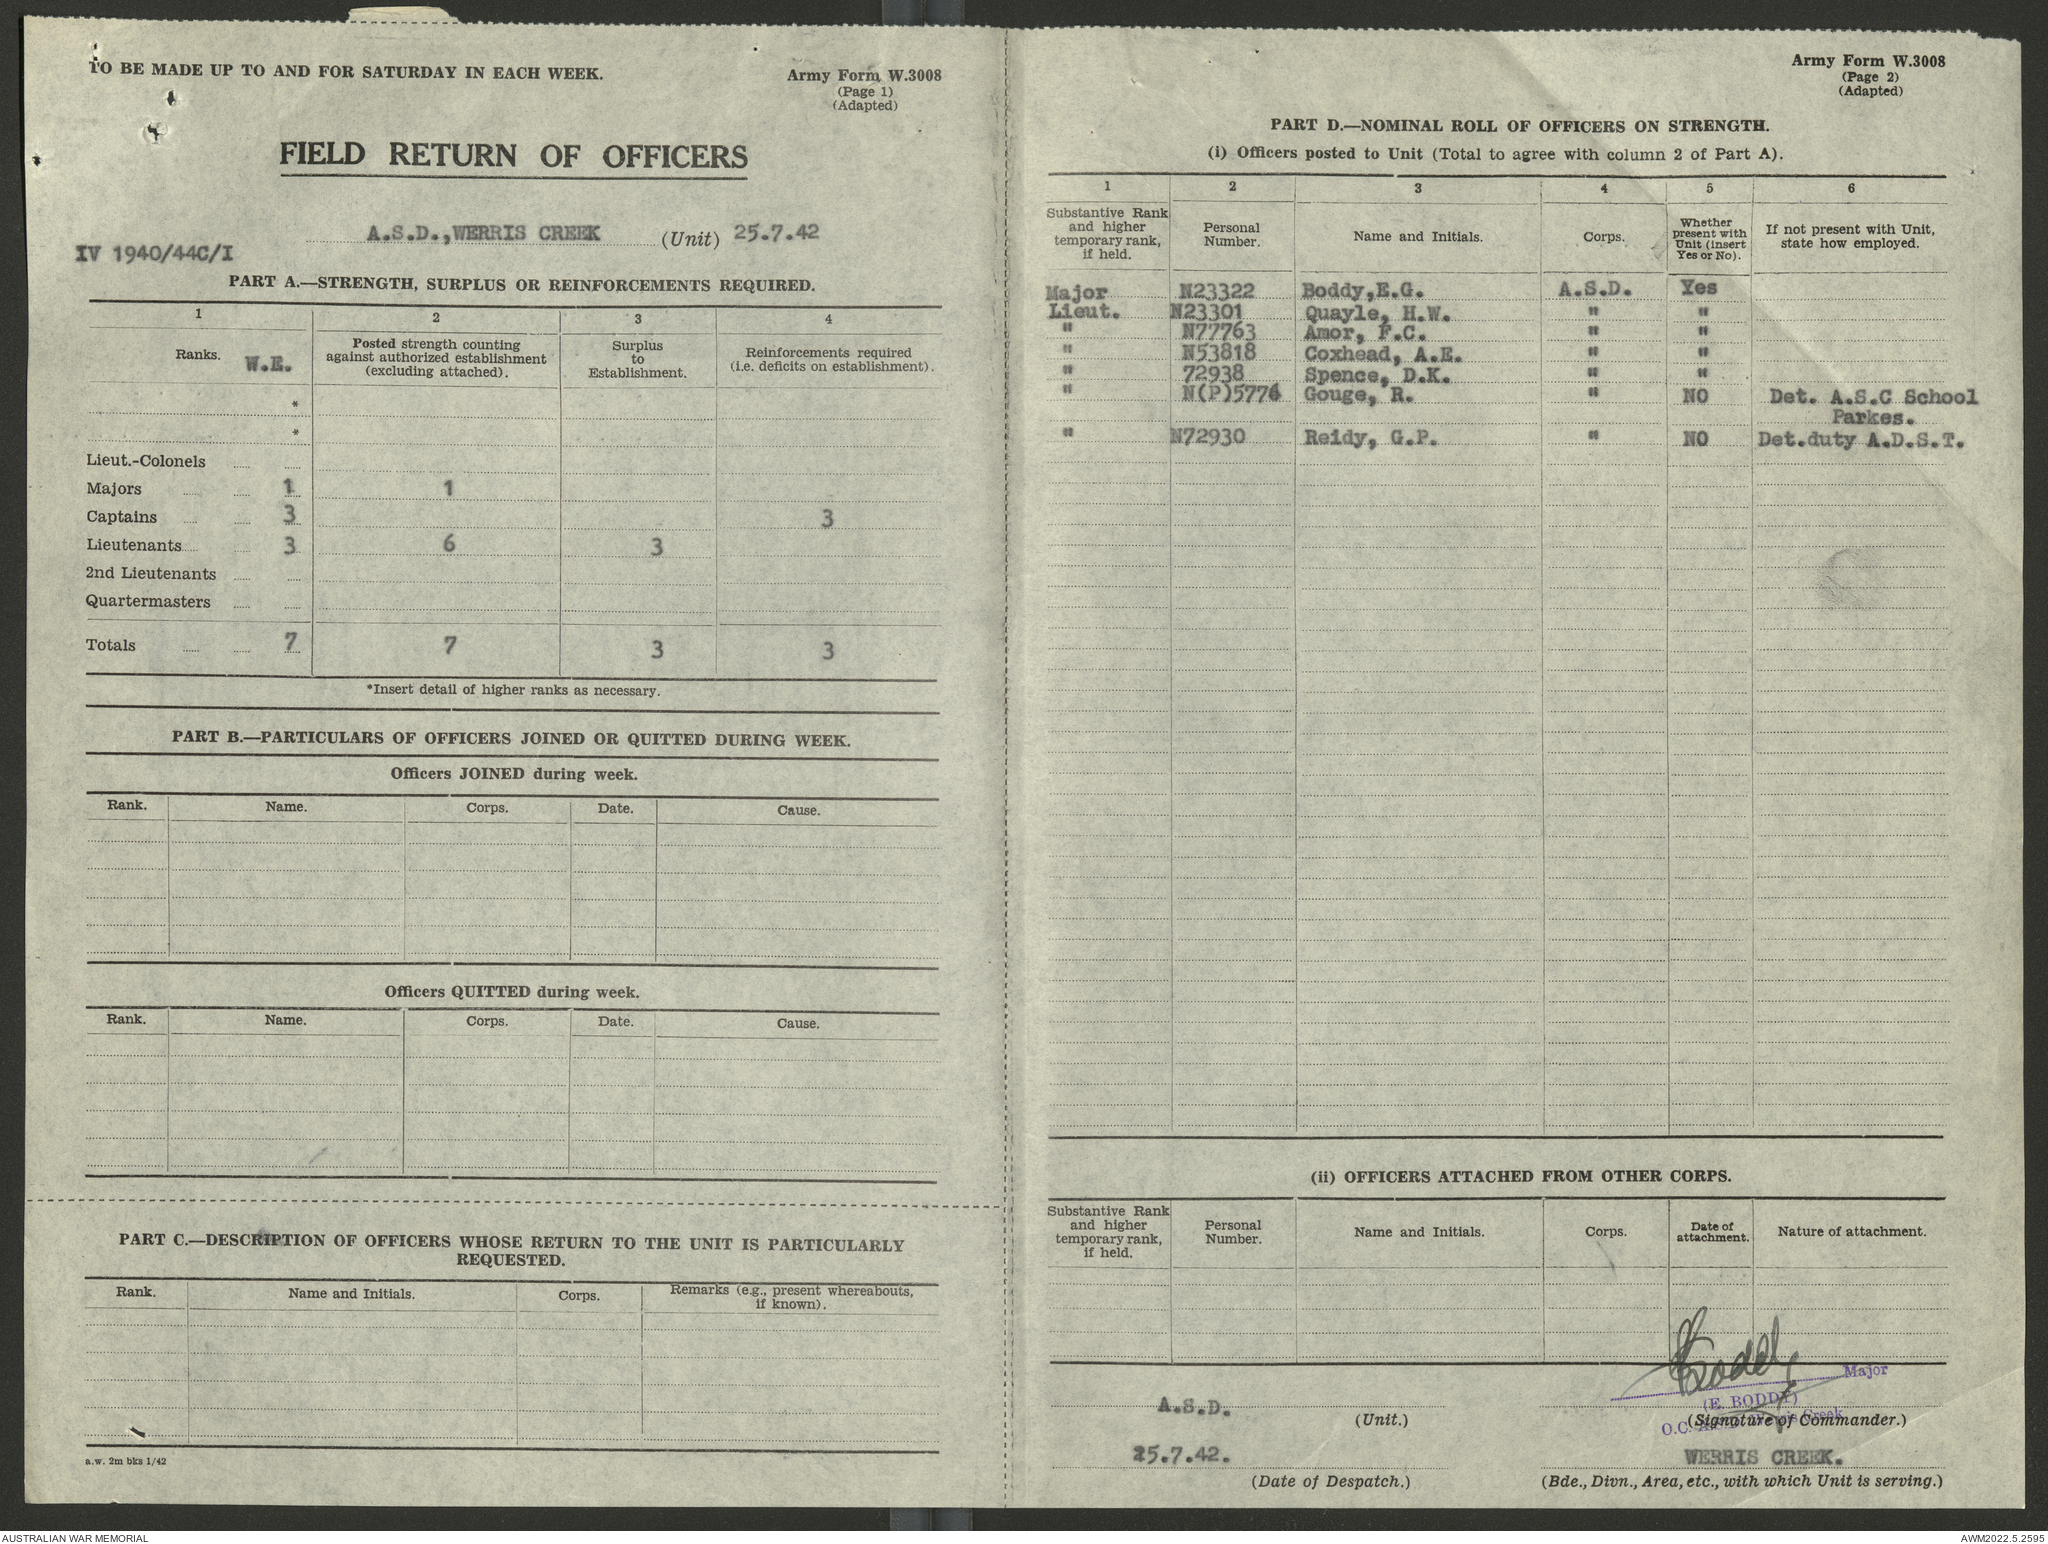 TO BE MADE UP TO AND FOR SATURDAY IN EACH WEEK.
Army Form W.3008
(Page 1)
(Adapted)
FIELD RETURN OF OFFICERS
A.S.D.,WERRIS CREEK (Unit) 25.7.42
IV 1940/44C/I
PART A.—STRENGTH, SURPLUS OR REINFORCEMENTS REQUIRED.
1 2 3 4
Ranks. W.E. Posted strength counting against authorized establishment (excluding attached). Surplus to Establishment. Reinforcements required (i.e. deficits on establishment).
*
*
Lieut.-Colonels
Majors 1 1
Captains 3 3
Lieutenants 3 6 3
2nd Lieutenants
Quartermasters
Totals 7 7 3 3
*Insert detail of higher ranks as necessary.
PART B.—PARTICULARS OF OFFICERS JOINED OR QUITTED DURING WEEK.
Officers JOINED during week.
Rank. Name. Corps. Date. Cause.
Officers QUITTED during week.
Rank. Name. Corps. Date. Cause.
PART C.—DESCRIPTION OF OFFICERS WHOSE RETURN TO THE UNIT IS PARTICULARLY
REQUESTED.
Rank. Name and Initials. Corps. Remarks (e.g., present whereabouts, if known).
a.w. 2m bks 1/42
Army Form W.3008
(Page 2)
(Adapted)
PART D.—NOMINAL ROLL OF OFFICERS ON STRENGTH.
(i) Officers posted to Unit (Total to agree with column 2 of Part A).
1 2 3 4 5 6
Substantive Rank and higher temporary rank, if held. Personal Number. Name and Initials. Corps. Whether present with Unit (insert Yes or No). If not present with Unit, state how employed.
Major N23322 Boddy,E.G. A.S.D. Yes
Lieut. N23301 Quayle, H.W. " "
" N77763 Amor, F.C. " "
" N53818 Coxhead, A.E. " "
" 72938 Spence, D.K. " "
" N(P)5774 Gouge, R. " NO Det. A.S.C School
Parkes.
" N72930 Reidy, G.P. " NO Det.duty A.D.S.T.
(ii) OFFICERS ATTACHED FROM OTHER CORPS.
Substantive Rank and higher temporary rank, if held. Personal Number. Name and Initials. Corps. Date of attachment. Nature of attachment.
Boddy
Major
(E. BODDY)
A.S.D. (Unit.) (Signature of Commander.)
O.C. Werris Creek
25.7.42. WERRIS CREEK.
(Date of Despatch.) (Bde., Divn., Area, etc., with which Unit is serving.)
AUSTRALIAN WAR MEMORIAL
AWM2022.5.2595